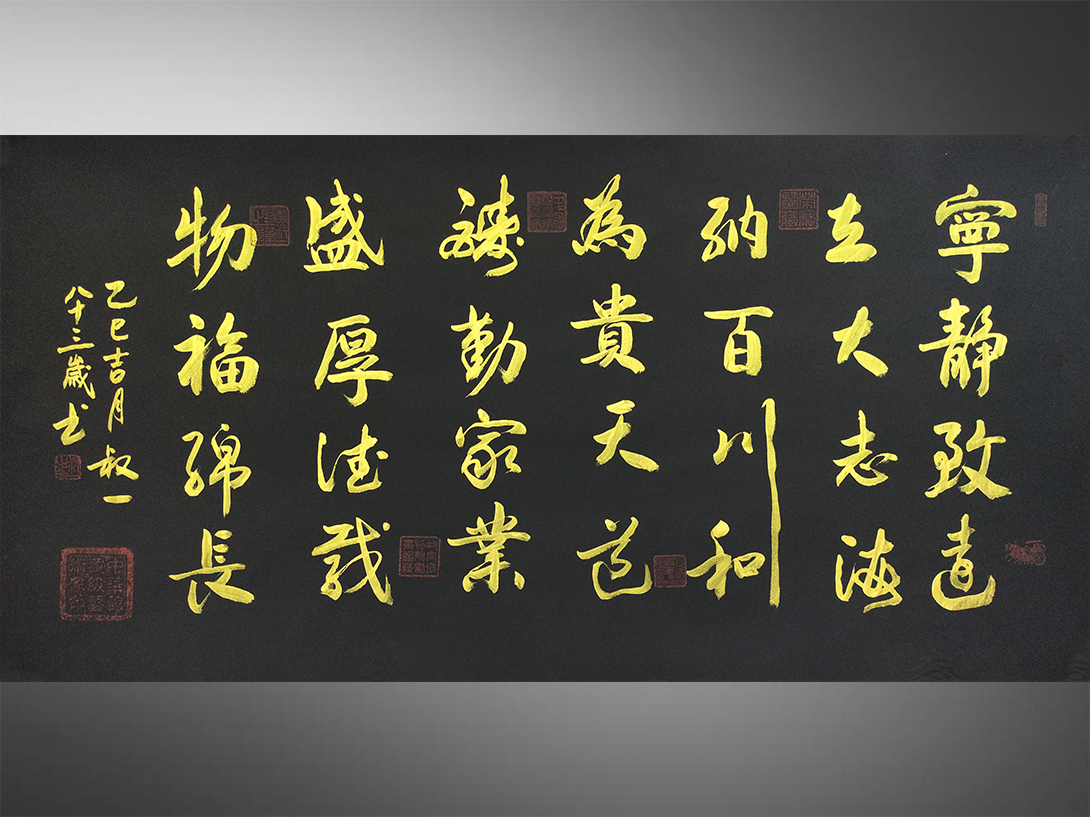 寧静致遠
立大志海
納百川和
為貴天道
醻勤家業
盛厚德載
物福綿長
乙巳吉月 叔一
八十三歲书